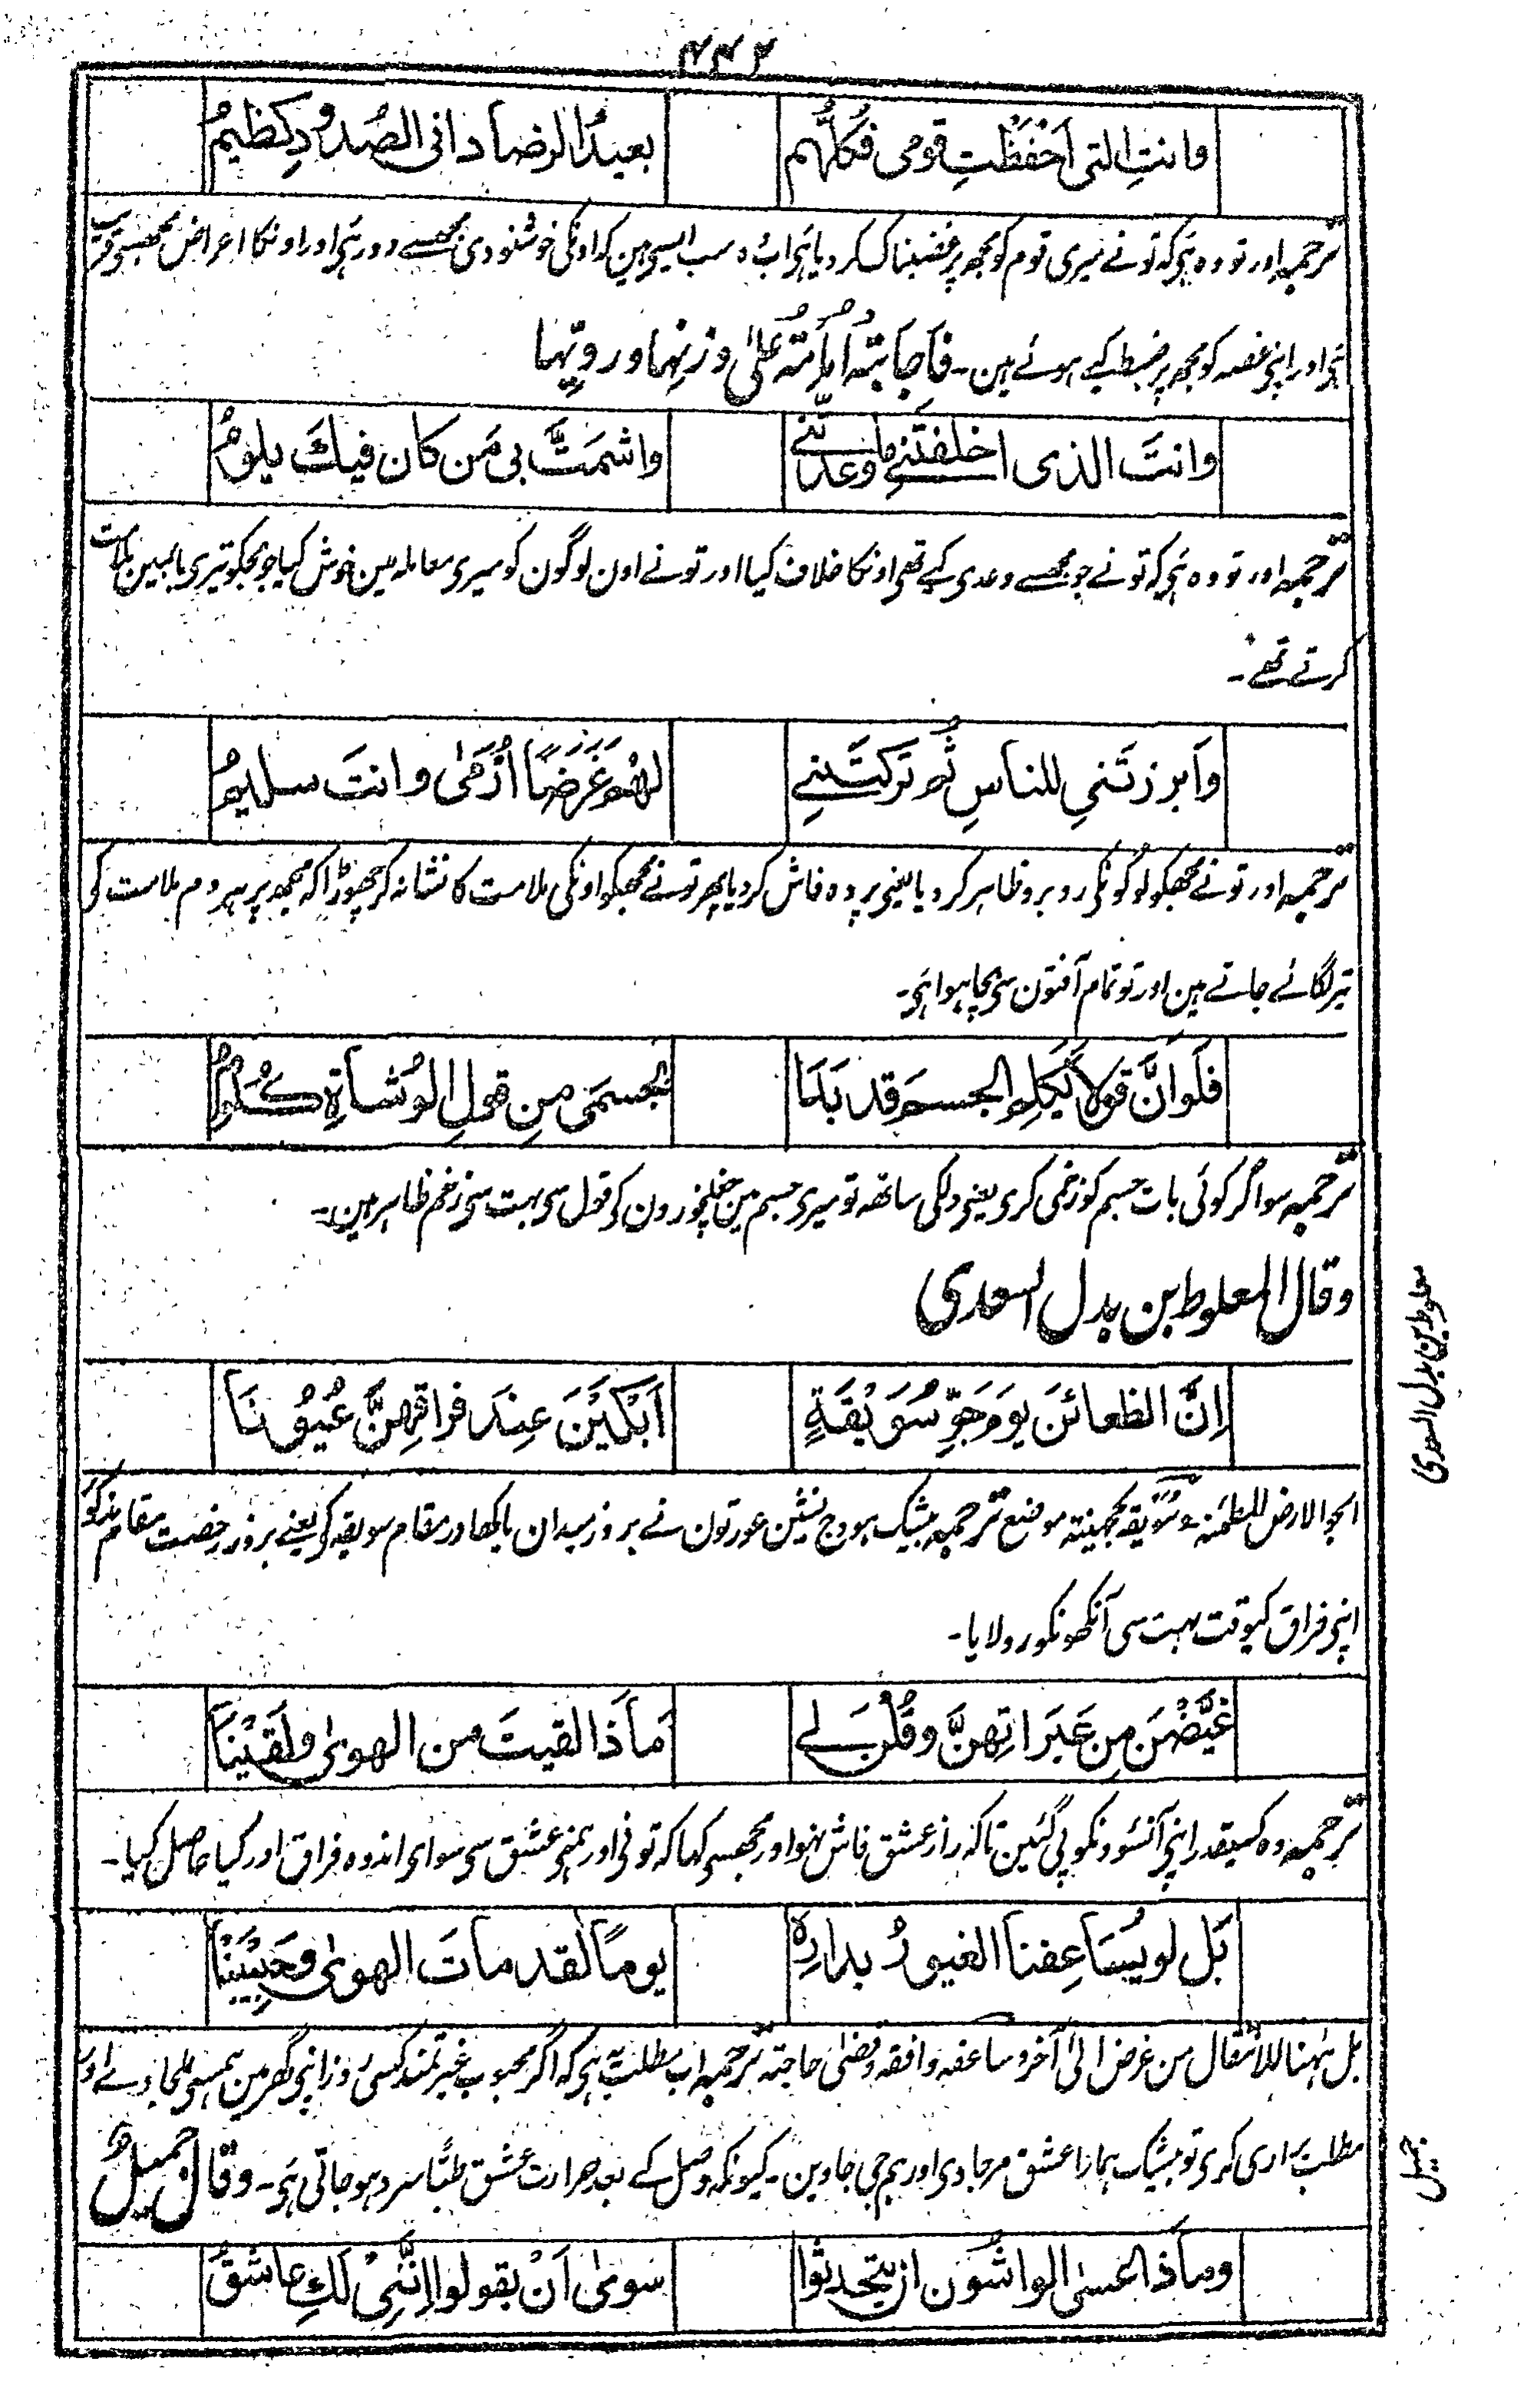 ۴۴۲
وانتِ التی اَحْفَظْتِ قومی فکُلُّهم بعیدُ الرضا دانی الصُدودِ کظیمُ
ترجمہ اور تو وہ ہَی کہ تونے میری قوم کو مجھپر غضبناک کردیا ہَی اب وہ سب ایسی ہین کہ اونکی خوشنودی مجھسے دور ہَی اور اونکا اعراض مجھسی قریب
ہَی اور اپنی غصہ کو مجھپر ضبط کیے ہوئے ہین۔ فَاَجَابَتْهُ اُمَامَتُه عَلیٰ وزنِها و رویّها
وانتَ الذی اخلفتَنِے ما وعدتَّنے واشمَتَّ بی مَن کان فیكَ یلومُ
ترجمہ اور تو وہ ہَی کہ تونے جو مجھسے وعدی کیے تھی اونکا خلاف کیا اور تونے اون لوگون کو میری معاملہ مین خوش کیا جو مجکو تیری بابمین ملامت
کرتے تھے۔
وَاَبرزتَنیِ للناسِ ثُم ترَکتَنِے لهُم غَرَضًا اُرْمیٰ وانتَ سلیمُ
ترجمہ اور تونے مجھکو لوگونکی روبرو ظاہر کردیا یعنی پردہ فاش کردیا پھر تونے مجھکو اونکی ملامت کا نشانہ کر چھوڑا کہ مجھپر ہر دم ملامت کی
تیر لگائے جاتے ہین اور تو تمام آفتون سی بچا ہوا ہَی۔
فلَو انَّ قولاً یَکلِم الجسمَ قد بَدَا بجسمَی مِن قولِ الوُشاةِ کُلُومُ
ترجمہ سو اگر کوئی بات جسم کو زخمی کری یعنی دلکی ساتھہ تو میری جسم مین چغلخورون کی قول سی بہت سی زخم ظاہر ہین۔
وقال المعلوط بن بدل السعدی
معلوط بن بدل السعدی
اِنَّ الظعائنَ یومَ جَوِّ سُوَیْقَةٍ اَبْکَیْنَ عِندَ فراقِهِنَّ عُیُوْنَا
الجو الارض المطمئنة وسُوَیقة کجهینة موضع ترجمہ بیشک ہودج نشین عورتون نے بروز میدان یا کہا اور مقام سویقہ کی یعنے بروز رخصت مقام مذکور
اپنی فراق کیوقت بہت سی آنکھونکو رولایا۔
غیَّضْنَ مِن عَبَراتِهنَّ وقُلْنَ لے مَاذا لقیتَ من الهویٰ ولَقَیْنَا
ترجمہ وہ کسیقدر اپنی آنسوونکو پی گئین تاکہ راز عشق فاش نہو اور مجھسی کہا کہ تونی اور ہمنی عشق سی سوای اندوہ فراق اور کیا حاصل کیا۔
بَل لو یُسَاعِفنا الغیورُ بدارِہ یومًا لقد ماتَ الهویٰ وحَیِیْنَا
بل ہٰہنا للانتقال من غرض الیٰ آخر وساعفہ وافقہ وقضیٰ حاجتہ ترجمہ اب مطلب یہ ہَی کہ اگر محبوب غیرتمند کسی روز اپنی گھر مین ہمسی ملجاوے اور
مطلب براری کری تو بیشک ہمارا عشق مرجاوی اور ہم جی جاوین۔ کیونکہ وصل کے بعد حرارت عشق طبعًا سرد ہوجاتی ہَی۔ وقال جمیلٌ
جمیل
وماذا عسیٰ الواشون ان یتحدثوا سویٰ اَنْ یقولوا اِنَّنِیْ لَكِ عاشقُ